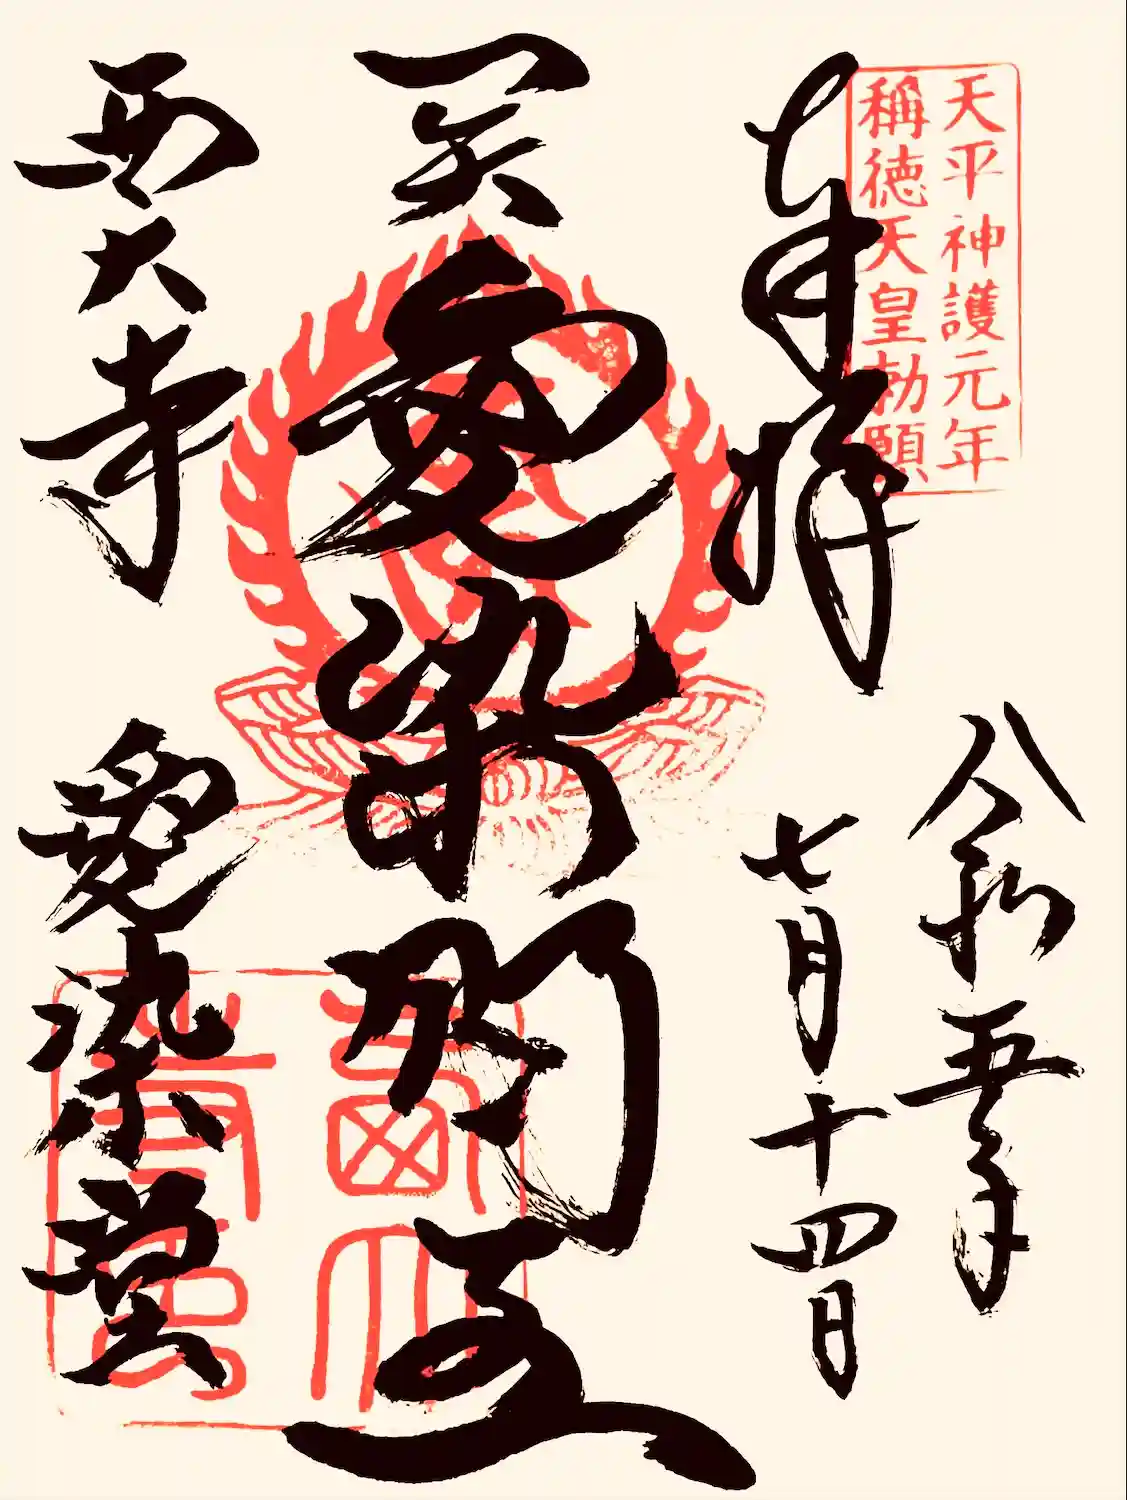 天平神護元年
稱徳天皇勅願
奉拝
令和五年
七月十四日
愛染明王
西大寺
愛染堂
西大
寺印